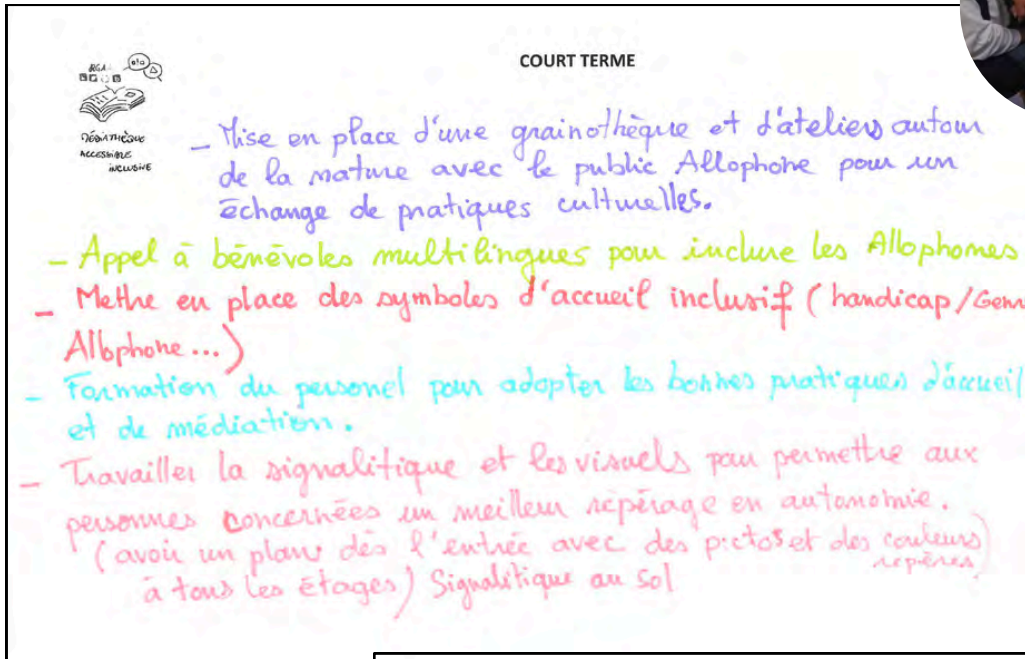 COURT TERME
RGA
MÉDIATHÈQUE
ACCESSIBLE
INCLUSIVE
_ Mise en place d'une grainothèque et d'ateliers autour
de la nature avec le public Allophone pour un
échange de pratiques culturelles.
- Appel à bénévoles multilingues pour inclure les Allophones
- Mettre en place des symboles d'accueil inclusif (handicap/Genr
Allophone...)
- Formation du personel pour adopter les bonnes pratiques d'accueil
et de médiation.
- Travailler la signalitique et les visuels pour permettre aux
personnes concernées un meilleur repérage en autonomie.
(avoir un plan dès l'entrée avec des pictos et des couleurs
repères)
à tous les étages) Signalitique au sol